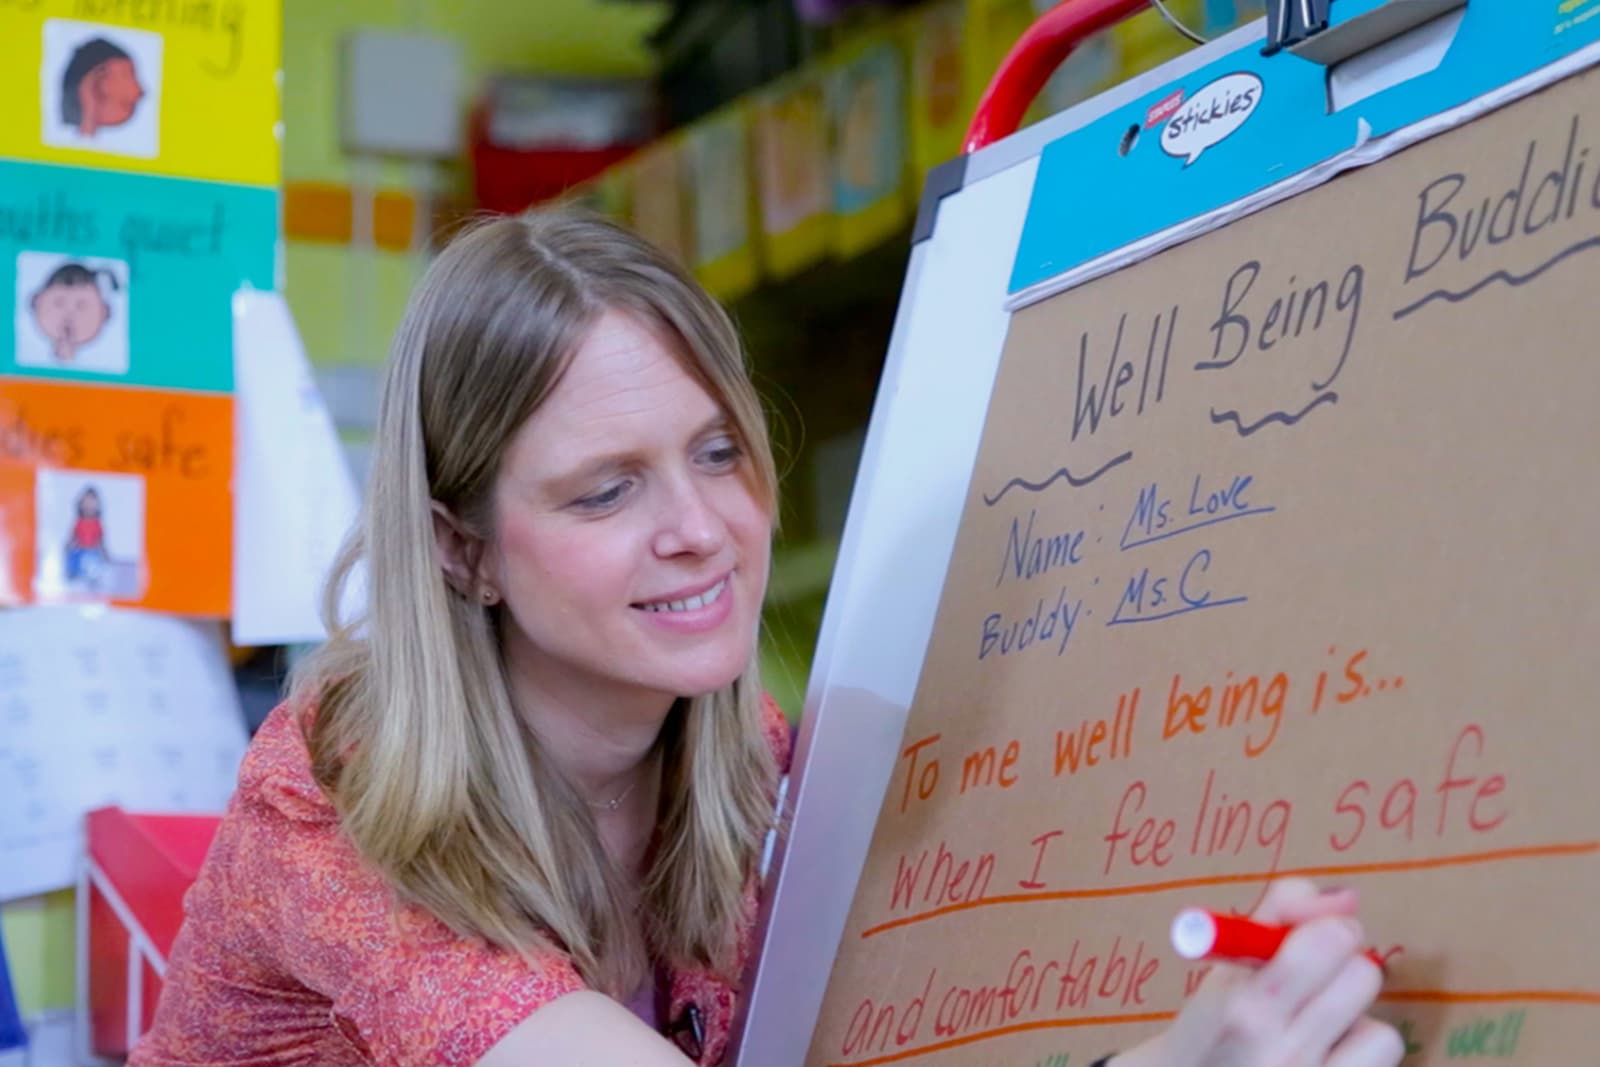 listening
quiet
safe
STAPLES
stickies
Well Being Buddie
Name: Ms. Love
Buddy: Ms. C
To me well being is...
When I feeling safe
and comfortable
well